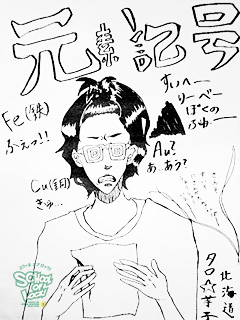 元素記号
すいへー
りーべー
ぼくの
ふねー
Fe(鉄)
ふぇっ!!
Au?
あ…あう?
Cu(銅)
きゅ…
北海道